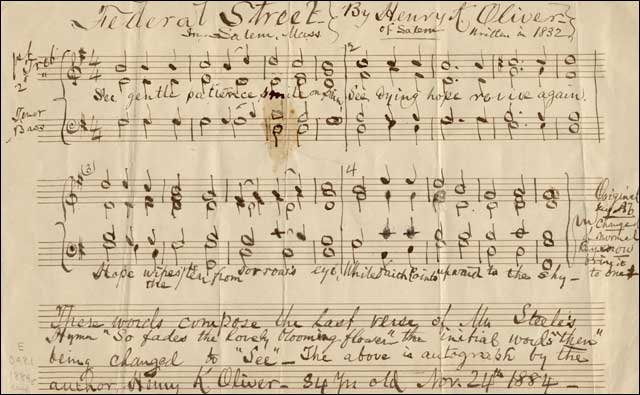 Federal Street By Henry K Oliver
In Salem, Mass of Salem Written in 1832
1st Treb
2d "
See gentle patience smile on pain, See dying hope revive again.
Tenor
Bass
(3) 4
Hope wipes the tear from sorrow's eye, While Faith points upward to the sky –
Original
key Ab
changed
normal
now
bring it
to one #
These words compose the last verse of Mrs Steele's
Hymn "So fades the lovely blooming flower" the initial word "then"
being changed to "See" – The above is autograph by the
author Henry K Oliver – 84 yrs old Nov. 24th 1884 –
E